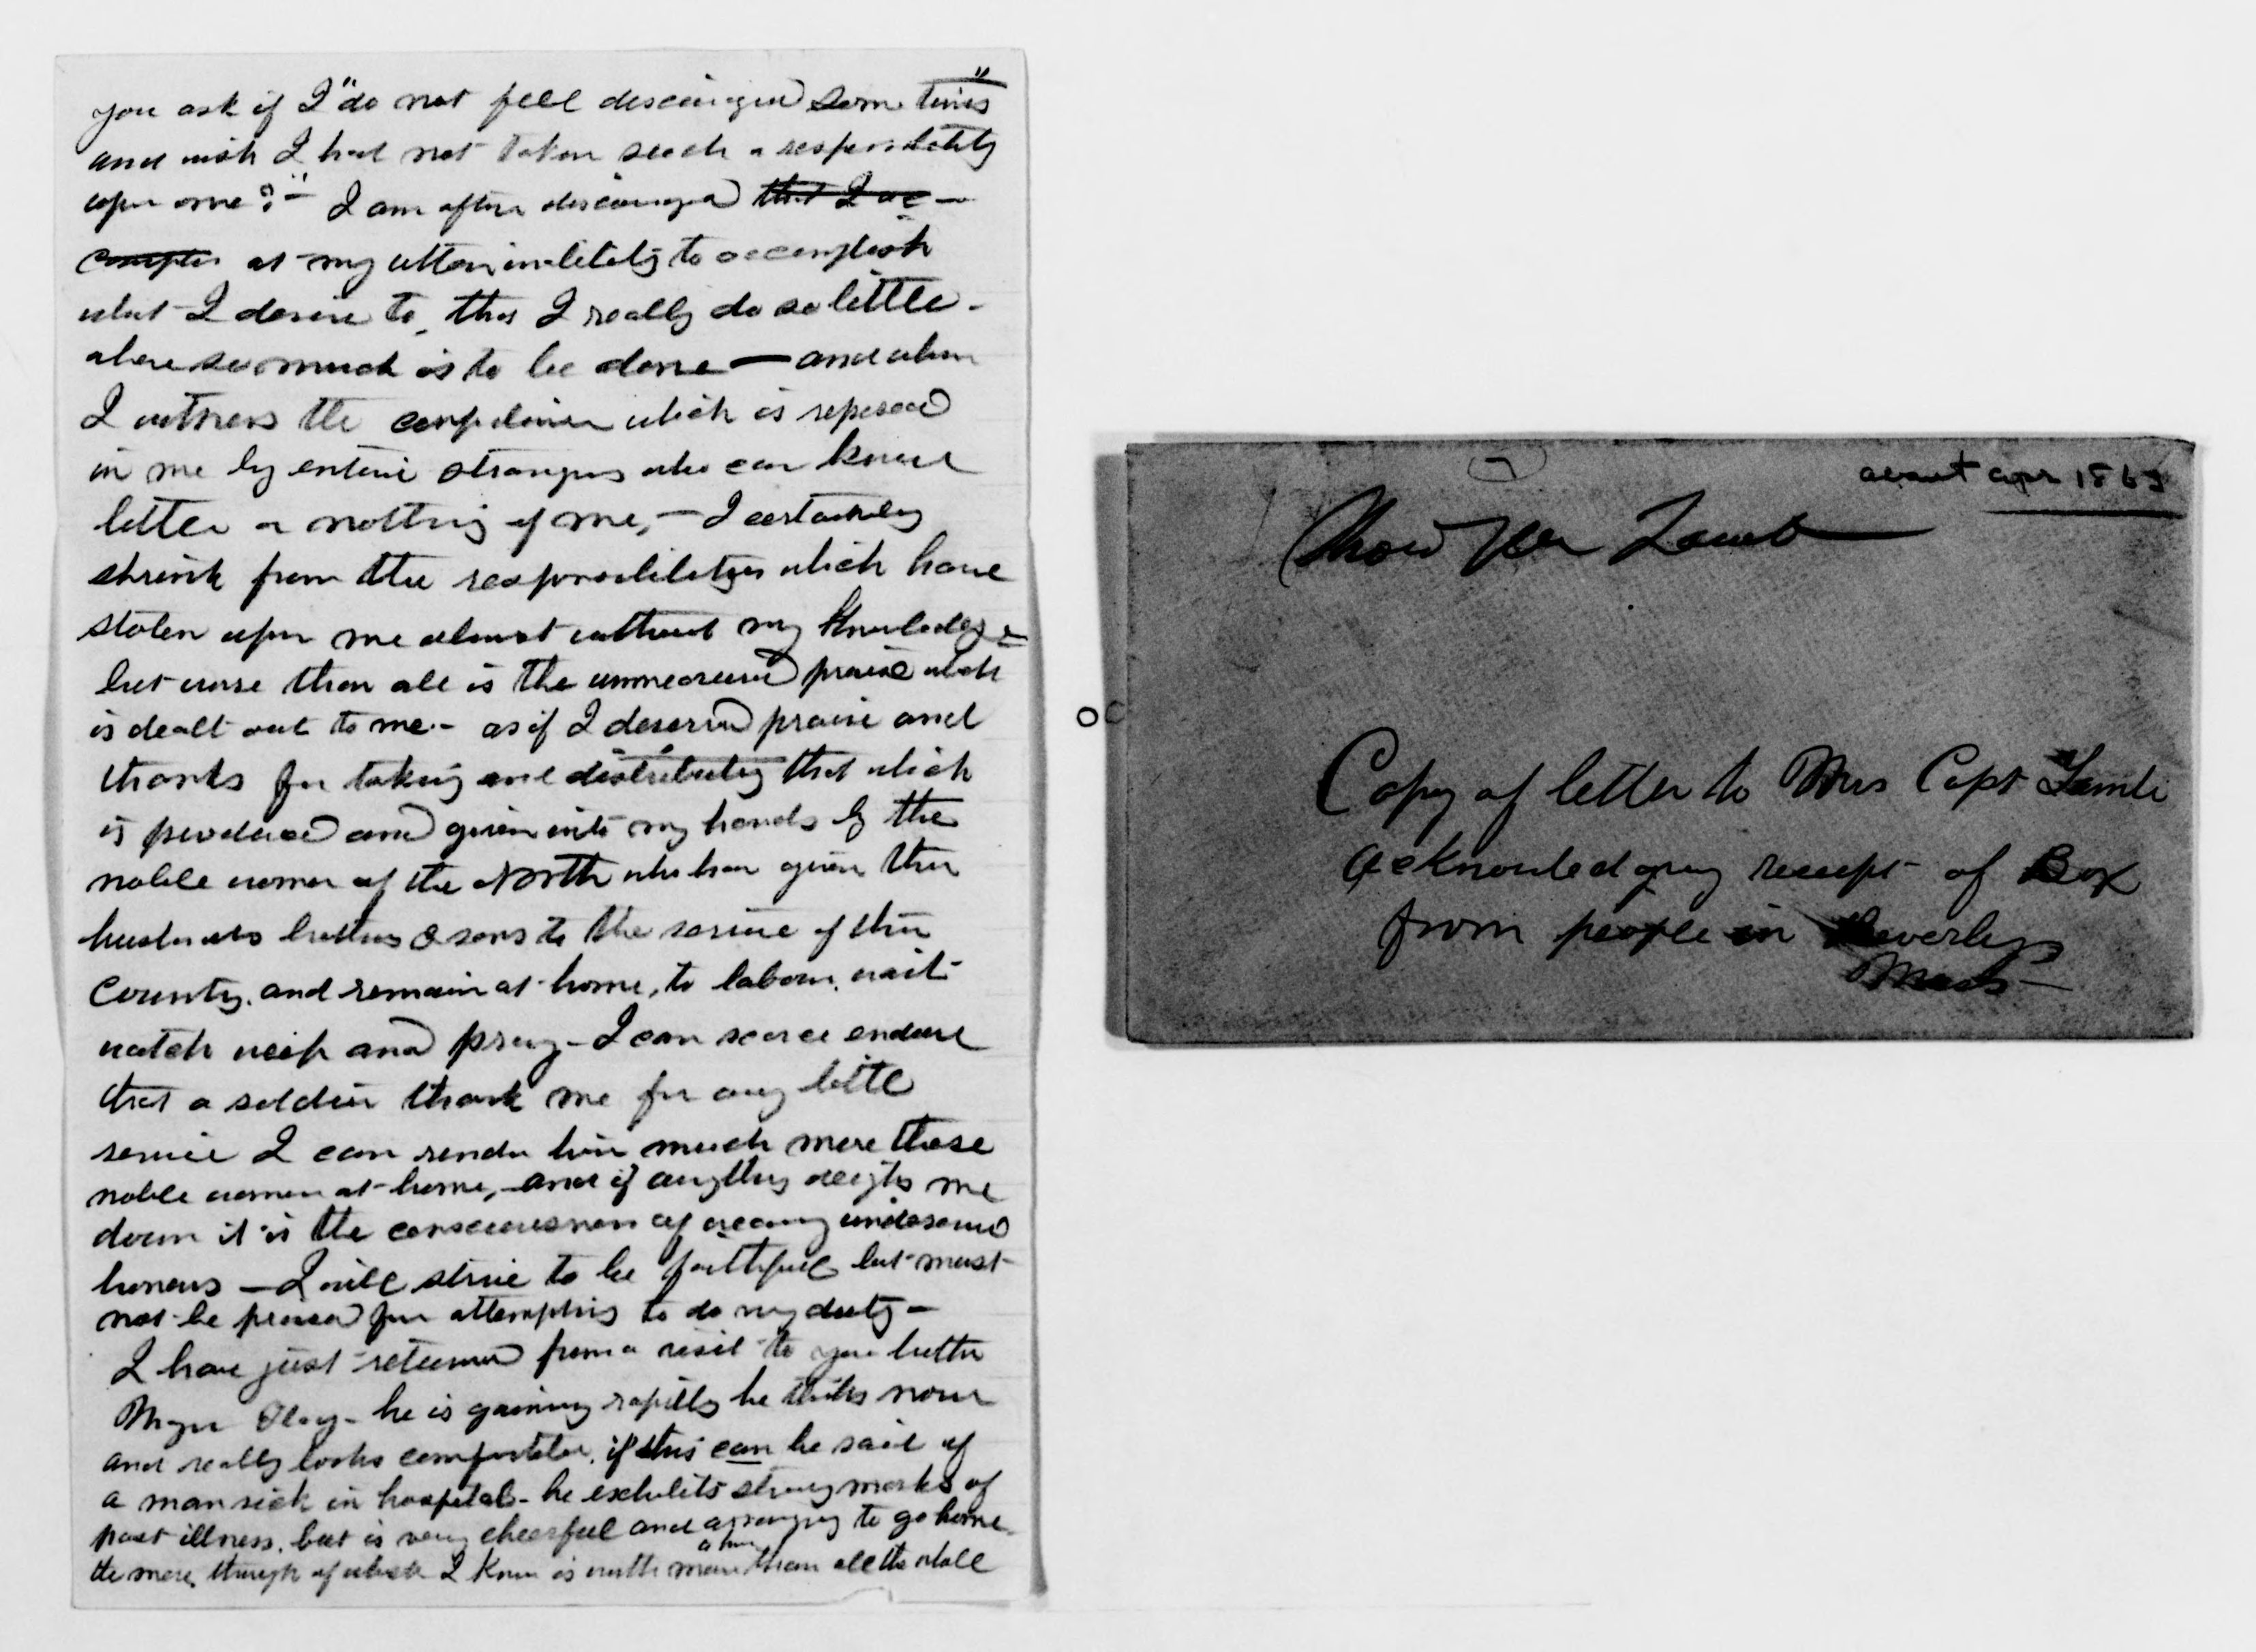 you ask if I "do not feel discouraged some times"
and wish I had not taken such a responsibility
upon me?"— I am often discouraged that I ac-
complis at my utter inability to accomplish
what I desire to, that I really do so little-
where so much is to be done — and when
I witness the confidence which is reposed
in me by entire strangers who can know
little or nothing of me, — I certainly
shrink from the responsibilities which have
stolen upon me almost without my knowledge -
but worse than all is the unmeasured praise which
is dealt out to me.- as if I deserved praise and
thanks for taking and distributing that which
is produced and given into my hands by the
noble women of the North who have given their
husbands brothers & sons to the service of their
country. and remain at home, to labour, wait-
watch weep and pray - I can scarce endure
that a soldier thank me for any little
service I can render him much more these
noble women at home,- and if anything weighs me
down it is the consciousness of wearing undeserved
honors — I will strive to be faithful but must
not be praised for attempting to do my duty —
I have just returned from a visit to your brother
Major - he is gaining rapidly he thinks now
and really looks comfortable, if this can be said of
a man sick in hospital - he exhibits strong marks of
past illness. but is very cheerful and arranging to go home.
the mere thought of which I know is worth more than all the whole
about apr 1863
Copy of letter to Mrs Capt Lamb
acknowledging receipt of Box
from people in Beverly
Mass -